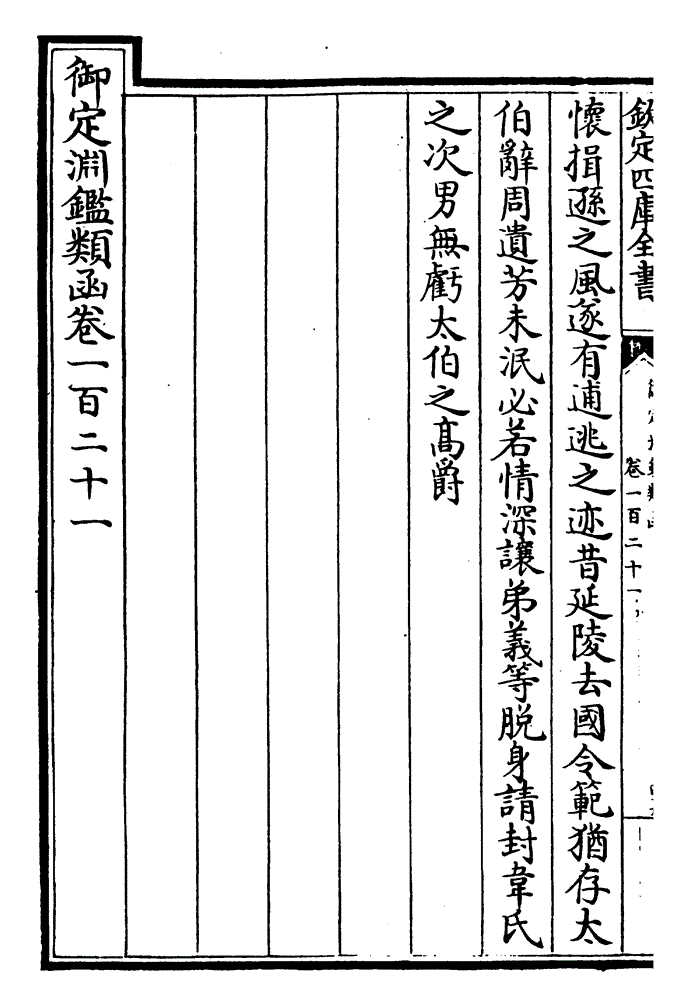 欽定四庫全書
卷一百二十一
懷揖遜之風遂有逋逃之迹昔延陵去國令範猶存太
伯辭周遺芳未泯必若情深讓弟義等脱身請封韋氏
之次男無虧太伯之高爵
御定淵鑑類函卷一百二十一